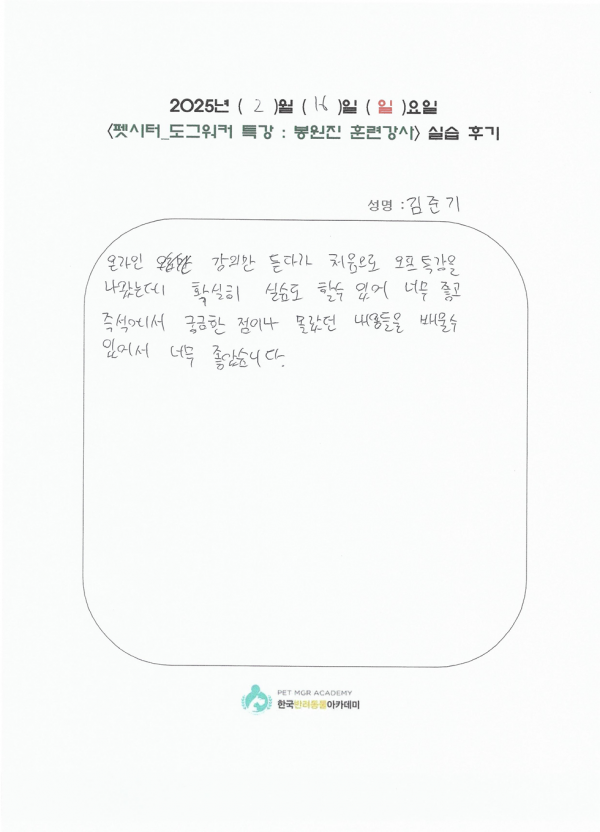 2025년 ( 2 )월 ( 16 )일 ( 일 )요일
<펫시터_도그워커 특강 : 봉원진 훈련강사> 실습 후기
성명 : 김준기
온라인 강의만 듣다가 처음으로 오프특강을
나왔는데 확실히 실습도 할수 있어 너무 좋고
즉석에서 궁금한 점이나 몰랐던 내용들을 배울수
있어서 너무 좋았습니다.
PET MGR ACADEMY
한국반려동물아카데미